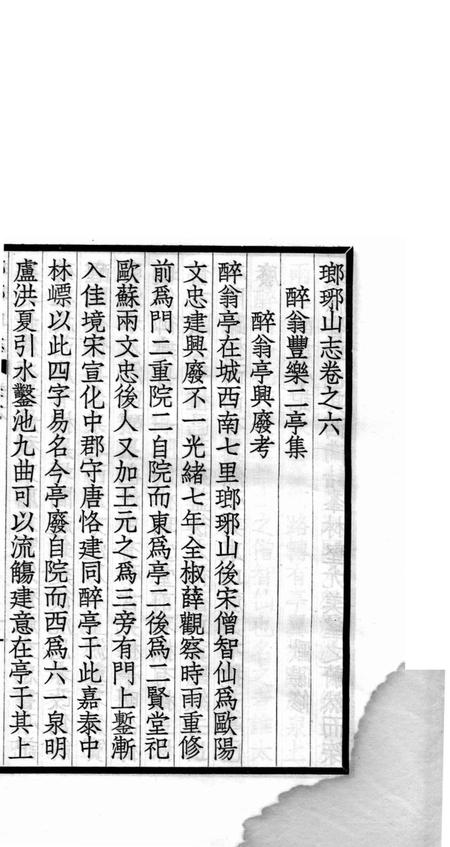 瑯琊山志卷之六
醉翁豐樂二亭集
醉翁亭興廢考
醉翁亭在城西南七里瑯琊山後宋僧智仙爲歐陽
文忠建興廢不一光緒七年全椒薛觀察時雨重修
前爲門二重院二自院而東爲亭二後爲二賢堂祀
歐蘇兩文忠後人又加王元之爲三旁有門上鏨漸
入佳境宋宣化中郡守唐恪建同醉亭于此嘉泰中
林嶾以此四字易名今亭廢自院而西爲六一泉明
盧洪夏引水鑿池九曲可以流觴建意在亭于其上